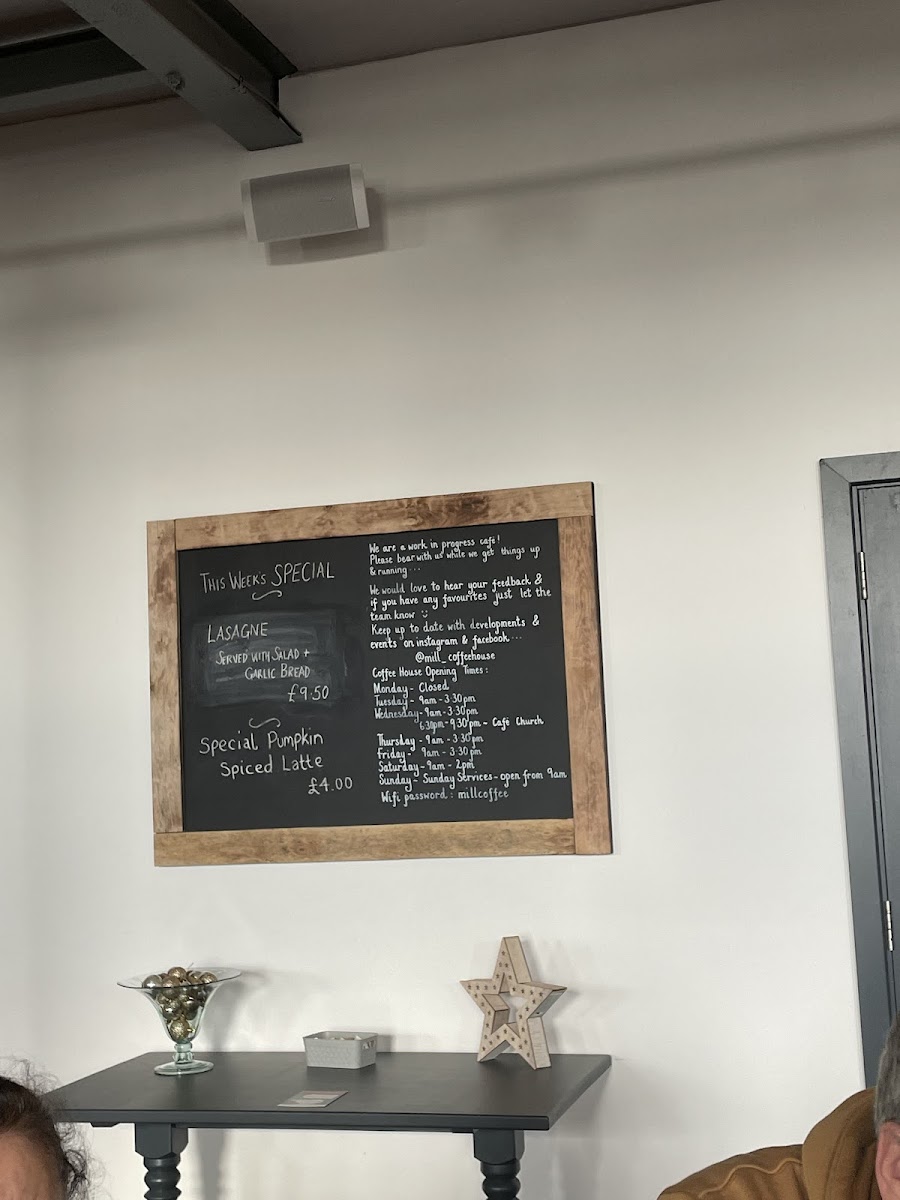 THIS WEEK'S SPECIAL
LASAGNE
SERVED WITH SALAD +
GARLIC BREAD
£9.50
Special Pumpkin
Spiced Latte
£4.00
We are a work in progress café!
Please bear with us while we get things up
& running...
We would love to hear your feedback &
if you have any favourites just let the
team know
Keep up to date with developments &
events on instagram & facebook...
@mill_coffeehouse
Coffee House Opening Times:
Monday - Closed
Tuesday - 9am - 3:30pm
Wednesday - 9am - 3:30pm
6:30pm - 9:30pm ~ Café Church
Thursday - 9am - 3:30pm
Friday - 9am - 3:30pm
Saturday - 9am - 2pm
Sunday ~ Sunday Services ~ open from 9am
Wifi password: millcoffee